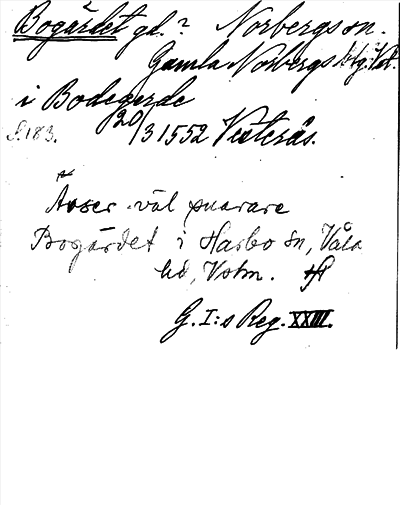 Bogärdet gd.? Norbergs sn.
Gamla Norbergs btg: Vstm.
i Bodegerde
S. 183. 20/3 1552 Vesterås.
*
Avser väl snarare
Bogärdet i Harbo sn, Våla
hd, Vstm.
G. I:s Reg. XXIII.